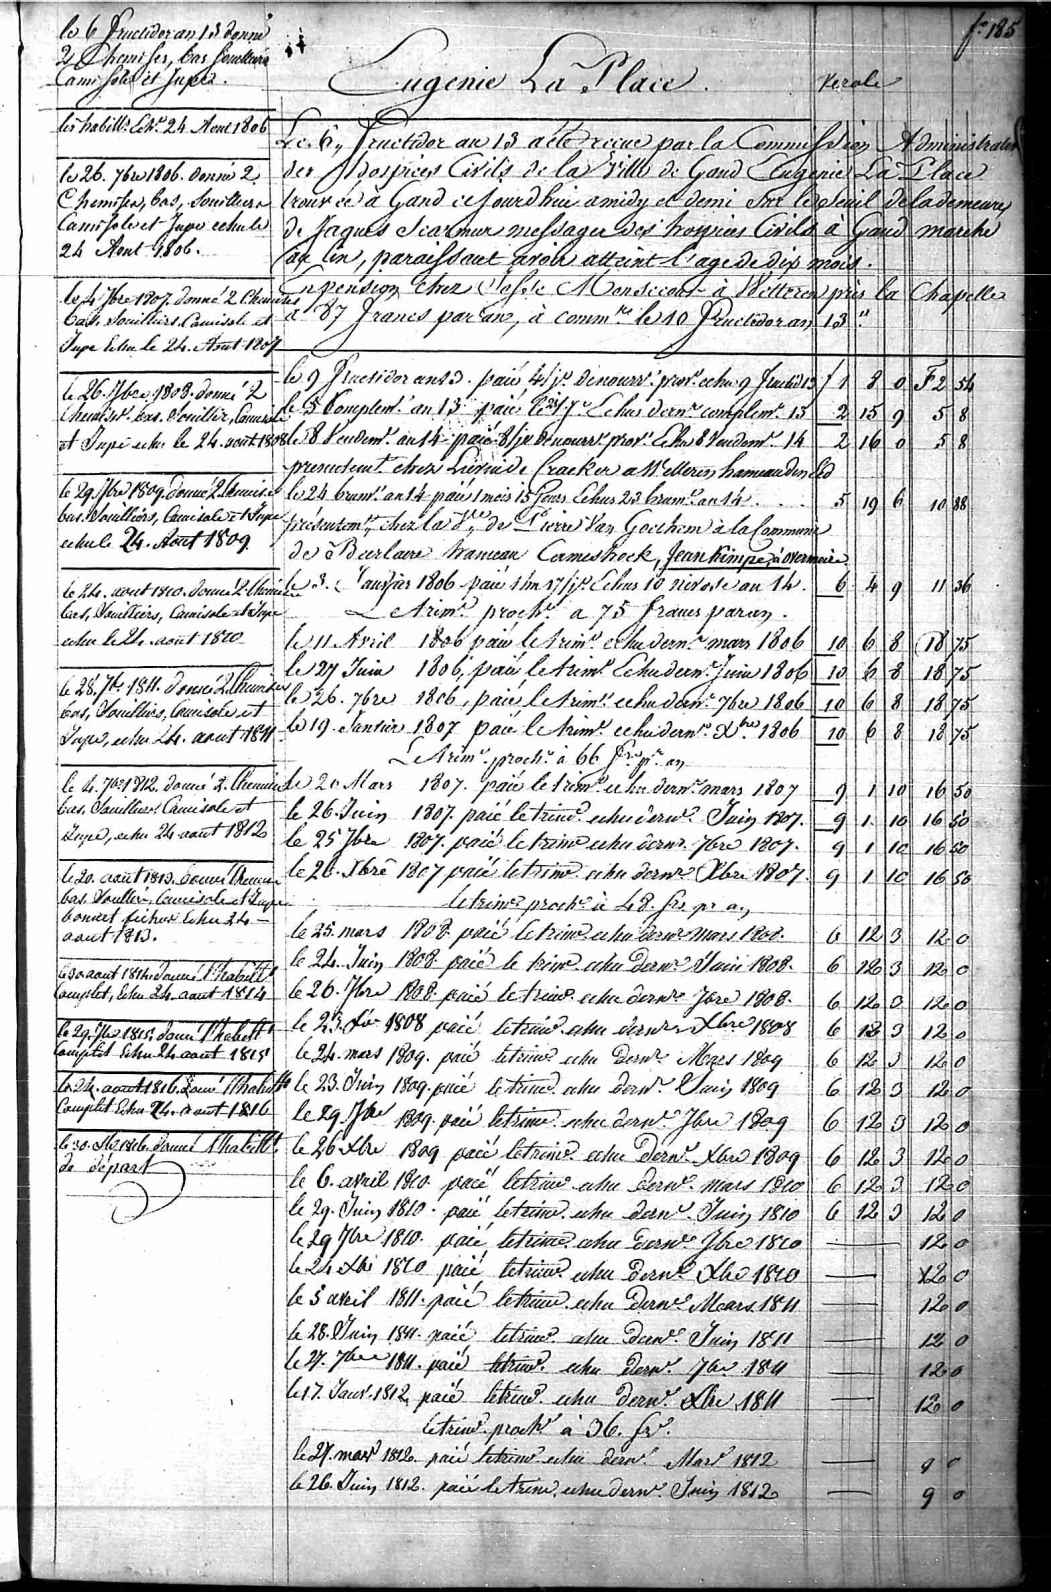 f.° 185
le 6 fructidor an 13 donné
2 Chemises, bas souilliers
Camisole et Jupe.
les habill.s Ech.s 24 Aout 1806
le 26. 7bre 1806. donné 2
Chemises, bas, souilliers
Camisole et Jupe echu le
24 Aout 1806.
le 4 7bre 1807 donné 2 Chemises
bas, souilliers Camisole et
Jupe Echu le 24. Aout 1807
le 26. 7bre 1808. donné 2
Chemises. bas. souillier, Camisole
et Jupe echu le 24. aout 1808
le 29. 7bre 1809. donné 2 Chemises
bas. souilliers, Camisole et Jupe
echu le 24. Aout 1809.
le 24. aout 1810. donné 2 Chemises
bas, souilliers, Camisole et Jupe
echu le 24. aout 1810
le 28. 7bre 1811. donné 2 Chemises
bas, souilliers, Camisole et
Jupe, echu 24. aout 1811.
le 4. 7bre 1812. donné 2. Chemises
bas. souilliers. Camisole et
Jupe, echu 24 aout 1812
le 20. aout 1813. donné Chemise
bas. souillier, Camisole et Jupe
bonnet fichu Echu 24
aout 1813.
le 30 aout 1814. donné l'habill.t
Complet, Echu 24. aout 1814
le 29. 7bre 1815. donné l'habill.t
complet Echu 24 aout 1815
le 24. aout 1816. donné l'habill.t
Complet Echu 24. aout 1816
le 30. 1816. donné l'habill.t
de départ
Eugenie La Place. Verole
Le 6, fructidor an 13 a été reçue par la Commission Administrative
des Hospices Civils de la Ville de Gand Eugenie La Place
trouvée à Gand ce jourd'hui a midy et demi sur le seuil de la demeure
de Jaques Scarmur messager des hospices Civils à Gand marche
au lin, paraissant avoir atteint l'age de dix mois.
En pension chez Josse Monsecour à Wetteren près la Chapelle
a 87 francs par an, à comm.er le 10 fructidor an 13 "
le 9 fructidor an 13. paié 4/j.s de nourr.e prov.e echu 9 fructid 13 / 1 8 0 F 2 54
le 5 Complem.t an 13 paié le j.s Echus dern.r complem.t 13 2 15 9 5 8
le 8 Vendem.e an 14 paié 8/j.s de nourr.e prov.e Echus 8 Vendem.e 14 2 16 0 5 8
presentem.t chez Livin de Craeker a Wetteren hameau den Ed
le 24 brum.e an 14 paié 1 mois 15 jours Echus 23 brum.e an 14. 5 19 6 10 88
présentem.t chez la V.ve de Pierre Van Goethem à la Commune
de Berlaere hameau Cameshoek, Jean Kimpe, à overmeire
le 3. Janvier 1806 paié 1 m 17/j.s Echus 10 nivose an 14. 6 4 9 11 36
Le trim.e proch.n a 75 francs par an.
le 11 Avril 1806 paié le trim.e echu dern.r mars 1806 10 6 8 18 75
le 27 Juin 1806, paié le trim.e Echu dern.r Juin 1806 10 6 8 18 75
le 26. 7bre 1806, paié le trim.e echu dern.r 7bre 1806 10 6 8 18 75
le 19. Janvier 1807 paié le trim.e echu dern.r Xbre 1806 10 6 8 18 75
Le trim.e proch.n à 66 fr.s p.r an
le 20 Mars 1807. paié le trim.e echu dern.r mars 1807 9 1 10 16 50
le 26. Juin 1807. paié le trim.e echu dern.r Juin 1807. 9 1. 10 16 50
le 25 7bre 1807. paié le trim.e echu dern.r 7bre 1807. 9 1 10 16 50
le 26. Xbre 1807 paié le trim.e echu dern.r Xbre 1807. 9 1 10 16 50
le trim.e proch.n à 48. frs pr an,
le 25. mars 1808. paié le trim.e echu dern.r mars 1808. 6 12 3 12 0
le 24. Juin 1808. paié le trim.e echu dern.r Juin 1808. 6 12 3 12 0
le 26. 7bre 1808. paié le trim.e echu dern.r 7bre 1808. 6 12 3 12 0
le 23. Xbre 1808 paié le trim.e echu dern.r Xbre 1808 6 12 3 12 0
le 24. mars 1809. paié le trim.e echu dern.r Mars 1809 6 12 3 12 0
le 23. Juin 1809. paié le trim.e echu dern.r Juin 1809 6 12 3 12 0
le 29. 7bre 1809. paié le trim.e echu dern.r 7bre 1809 6 12 3 12 0
le 26 Xbre 1809 paié le trim.e echu dern.r Xbre 1809 6 12 3 12 0
le 6. avril 1810. paié le trim.e echu dern.r mars 1810 6 12 3 12 0
le 29. Juin 1810. paié le trim.e echu dern.r Juin 1810 6 12 3 12 0
le 29 7bre 1810. paié le trim.e echu dern.r 7bre 1810 — 12 0
le 24 Xbre 1810 paié le trim.e echu dern.r Xbre 1810 — 12 0
le 5 avril 1811. paié le trim.e echu dern.r Mars 1811 — 12 0
le 28. Juin 1811. paié le trim.e echu dern.r Juin 1811 — 12 0
le 27. 7bre 1811. paié le trim.e echu dern.r 7bre 1811 — 12 0
le 17. Janv.r 1812, paié le trim.e echu dern.r Xbre 1811 — 12 0
le trim.e proch.n à 36. frs.
le 27. mars 1812. paié le trim.e echu dern.r Mars 1812 — 9 0
le 26. Juin 1812. paié le trim.e echu dern.r Juin 1812 — 9 0